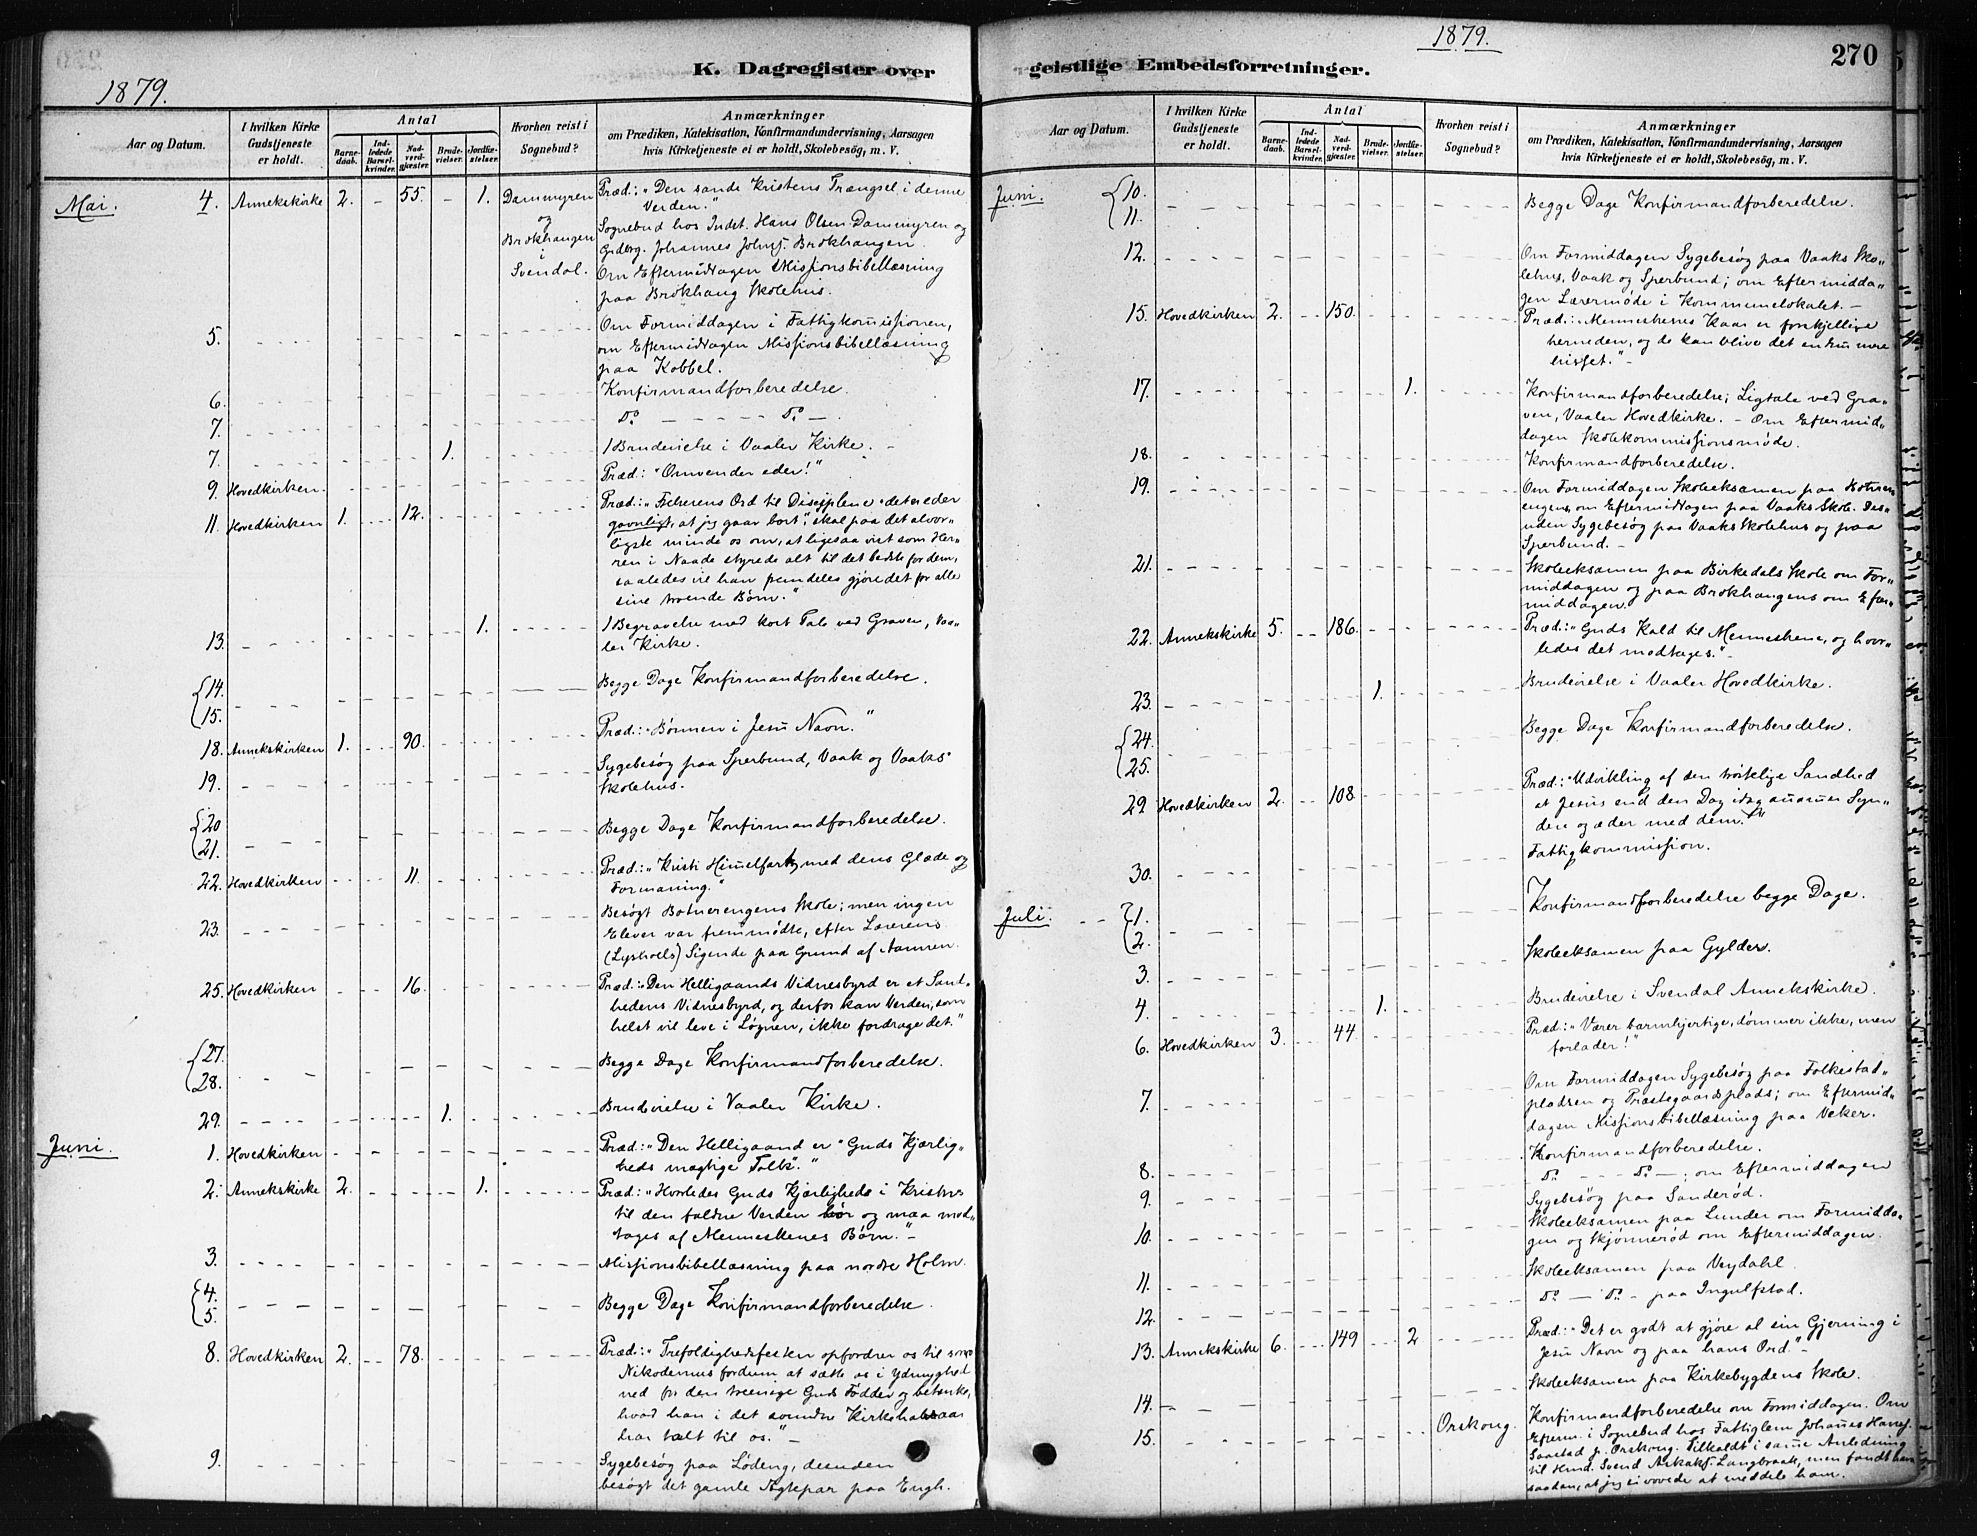 1879.
K. Dagregister over
Aar og Datum.
I hvilken Kirke Gudstjeneste er holdt.
Antal
Barnedaab.
Indledede Barselkvinder.
Nadverdgjæster.
Brudevielser.
Jordfæstelser.
Hvorhen reist i Sognebud?
Anmærkninger
om Prædiken, Katekisation, Konfirmandundervisning, Aarsagen
hvis Kirketjeneste ei er holdt, Skolebesøg, m. V.
Mai. 4. Annekskirke 2. – 55. – 1. Dammyren og Brokhaugen i Svendal. Præd.: "Den sande Kristens Trængsel i denne
Verden."
Sognebud hos Indst. Hans Olsen Dammyren og
Grdbrg. Johannes Johns. Brokhaugen.
Om Eftermiddagen Missionsbibellæsning
paa Brokhaug Skolehus.
5. Om Formiddagen i Fattigkomissionen,
om Eftermiddagen Missionsbibellæsning
paa Kobbel.
6. Konfirmandforberedelse.
7. Do – – – – – Do –.
7. 1. 1 Brudevielse i Vaaler Kirke. –
9. Hovedkirken. Præd.: "Omvender eder!"
11. Hovedkirken 1. 12. Præd.: "Frelserens Ord til Disciplene: det er eder
gavnligt, at jeg gaar bort", skal paa det alvor-
ligste minde os om, at ligesaa vist som Her-
ren i Naade styrede alt til det bedste for dem,
saaledes vil han fremdeles gjøre det for alle
sine troende Børn."
13. 1. 1 Begravelse med kort Tale ved Graven, Vaa-
ler Kirke.
14. 15. Begge Dage Konfirmandforberedelse.
18. Annekskirken 1. 90. Præd.: "Bønnen i Jesu Navn."
19. Sygebesøg paa Sperbund, Vaak og Vaaks
Skolehus.
20 21. Begge Dage Konfirmandforberedelse.
22. Hovedkirken 11. Præd.: "Kristi Himelfart, med dens Glæde og
Formaning."
23. Besøgt Botnerengens Skole; men ingen
Elever var fremmødte, efter Lærerens
(Lysholls) Sigende paa Grund af Aannen.
25. Hovedkirken 16. Præd.: "Den Helligaands Vidnesbyrd er et Sand-
hedens Vidnesbyrd, og derfor kan Verden, som
helst vil leve i Løgnen, ikke fordrage det."
27. 28. Begge Dage Konfirmandforberedelse.
29. 1. Brudevielse i Vaaler Kirke.
Juni. 1. Hovedkirken Præd.: "Den Helligaand er "Guds Kjærlig-
heds mægtige Tolk"."
2. Annekskirke 2. 1. Præd.: "Hvorledes Guds Kjærligheds i Kristus
til den faldne Verden bør og maa mod-
tages af Menneskenes Børn." –
3. Missionsbibellæsning paa nordre Holm.
4. 5. Begge Dage Konfirmandforberedelse.
8. Hovedkirken 2. 78. Præd.: "Trefoldighedsfesten opfordrer os til som
Nikodemus fordum at sætte os i Ydmyghed
ned for den treenige Guds Fødder og betænke,
hvad han i det svundne Kirkehalvaar
har talt til os." –
9. Sygebesøg paa Lødeng, desuden
besøgt det gamle Ægtepar paa Engh.
1879.
270
geistlige Embedsforretninger.
Aar og Datum.
I hvilken Kirke Gudstjeneste er holdt.
Antal
Barnedaab.
Indledede Barselkvinder.
Nadverdgjæster.
Brudevielser.
Jordfæstelser.
Hvorhen reist i Sognebud?
Anmærkninger
om Prædiken, Katekisation, Konfirmandundervisning, Aarsagen
hvis Kirketjeneste ei er holdt, Skolebesøg, m. V.
Juni. 10. 11. Begge Dage Konfirmandforberedelse.
12. Om Formiddagen Sygebesøg paa Vaaks Sko-
lehus, Vaak og Sperbund; om Eftermidda-
gen Lærermøde i Kommunelokalet. –
15. Hovedkirken 2. 150. Præd.: "Menneskenes Kaar er forskjellige
herneden, og de kan blive det endnu mere
hisset." –
17. 1. Konfirmandforberedelse; Ligtale ved Gra-
ven, Vaaler Hovedkirke. – Om Eftermid-
dagen Skolekommissionsmøde.
18. Konfirmandforberedelse.
19. Om Formiddagen Skoleeksamen paa Botner-
engen, om Eftermiddagen paa Vaaks Skole. Des-
uden Sygebesøg paa Vaaks Skolehus og paa
Sperbund. –
21. Skoleeksamen paa Birkedals Skole om For-
middagen og paa Brokhaugens om Efter-
middagen.
22. Annekskirke 5. 186. Præd.: "Guds Kald til Menneskene, og hvor-
ledes det modtages." –
23. 1. Brudevielse i Vaaler Hovedkirke.
24. 25. Begge Dage Konfirmandforberedelse.
29 Hovedkirken 2. 108. Præd.: "Udvikling af den trøstelige Sandhed
at Jesus end den Dag idag anammer Syn-
dere og æder med dem."
30. Fattigkommission.
Juli. 1. 2. Konfirmandforberedelse begge Dage.
3. Skoleeksamen paa Gylder.
4. 1. Brudevielse i Svendal Annekskirke.
6. Hovedkirken 3. 44. Præd.: "Værer barmhjertige, dømmer ikke, men
forlader!"
7. Om Formiddagen Sygebesøg paa Folkestad-
pladsen og Præstegaardsplads; om Eftermid-
dagen Missionsbibellæsning paa Veker.
8. Konfirmandforberedelse.
9. Do – – Do –; om Eftermiddagen
Sygebesøg paa Sanderød.
10. Skoleeksamen paa Lunder om Formidda-
gen og Skjønnerød om Eftermiddagen.
11. Skoleeksamen paa Veydahl.
12. Do – Do – paa Ingulfstad.
13. Annekskirke 6. 149 2 Præd.: "Det er godt at gjøre al sin Gjerning i
Jesu Navn og paa hans Ord." –
14. Skoleeksamen paa Kirkebygdens Skole.
15. Orskoug. Konfirmandforberedelse om Formiddagen. Om
Efterm. i Sognebud hos Fattiglem Johanes Hans.
Saastad p. Orskoug. Tilkaldt i same Anledning
til Kmd. Svend Aslaks. Langbraak, men fandt ham
saadan, at jeg ei vovede at meddele ham.